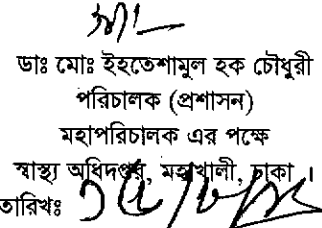 ডাঃ মোঃ ইহতেশামুল হক চৌধুরী
পরিচালক (প্রশাসন)
মহাপরিচালক এর পক্ষে
স্বাস্থ্য অধিদপ্তর, মহাখালী, ঢাকা ।
তারিখঃ